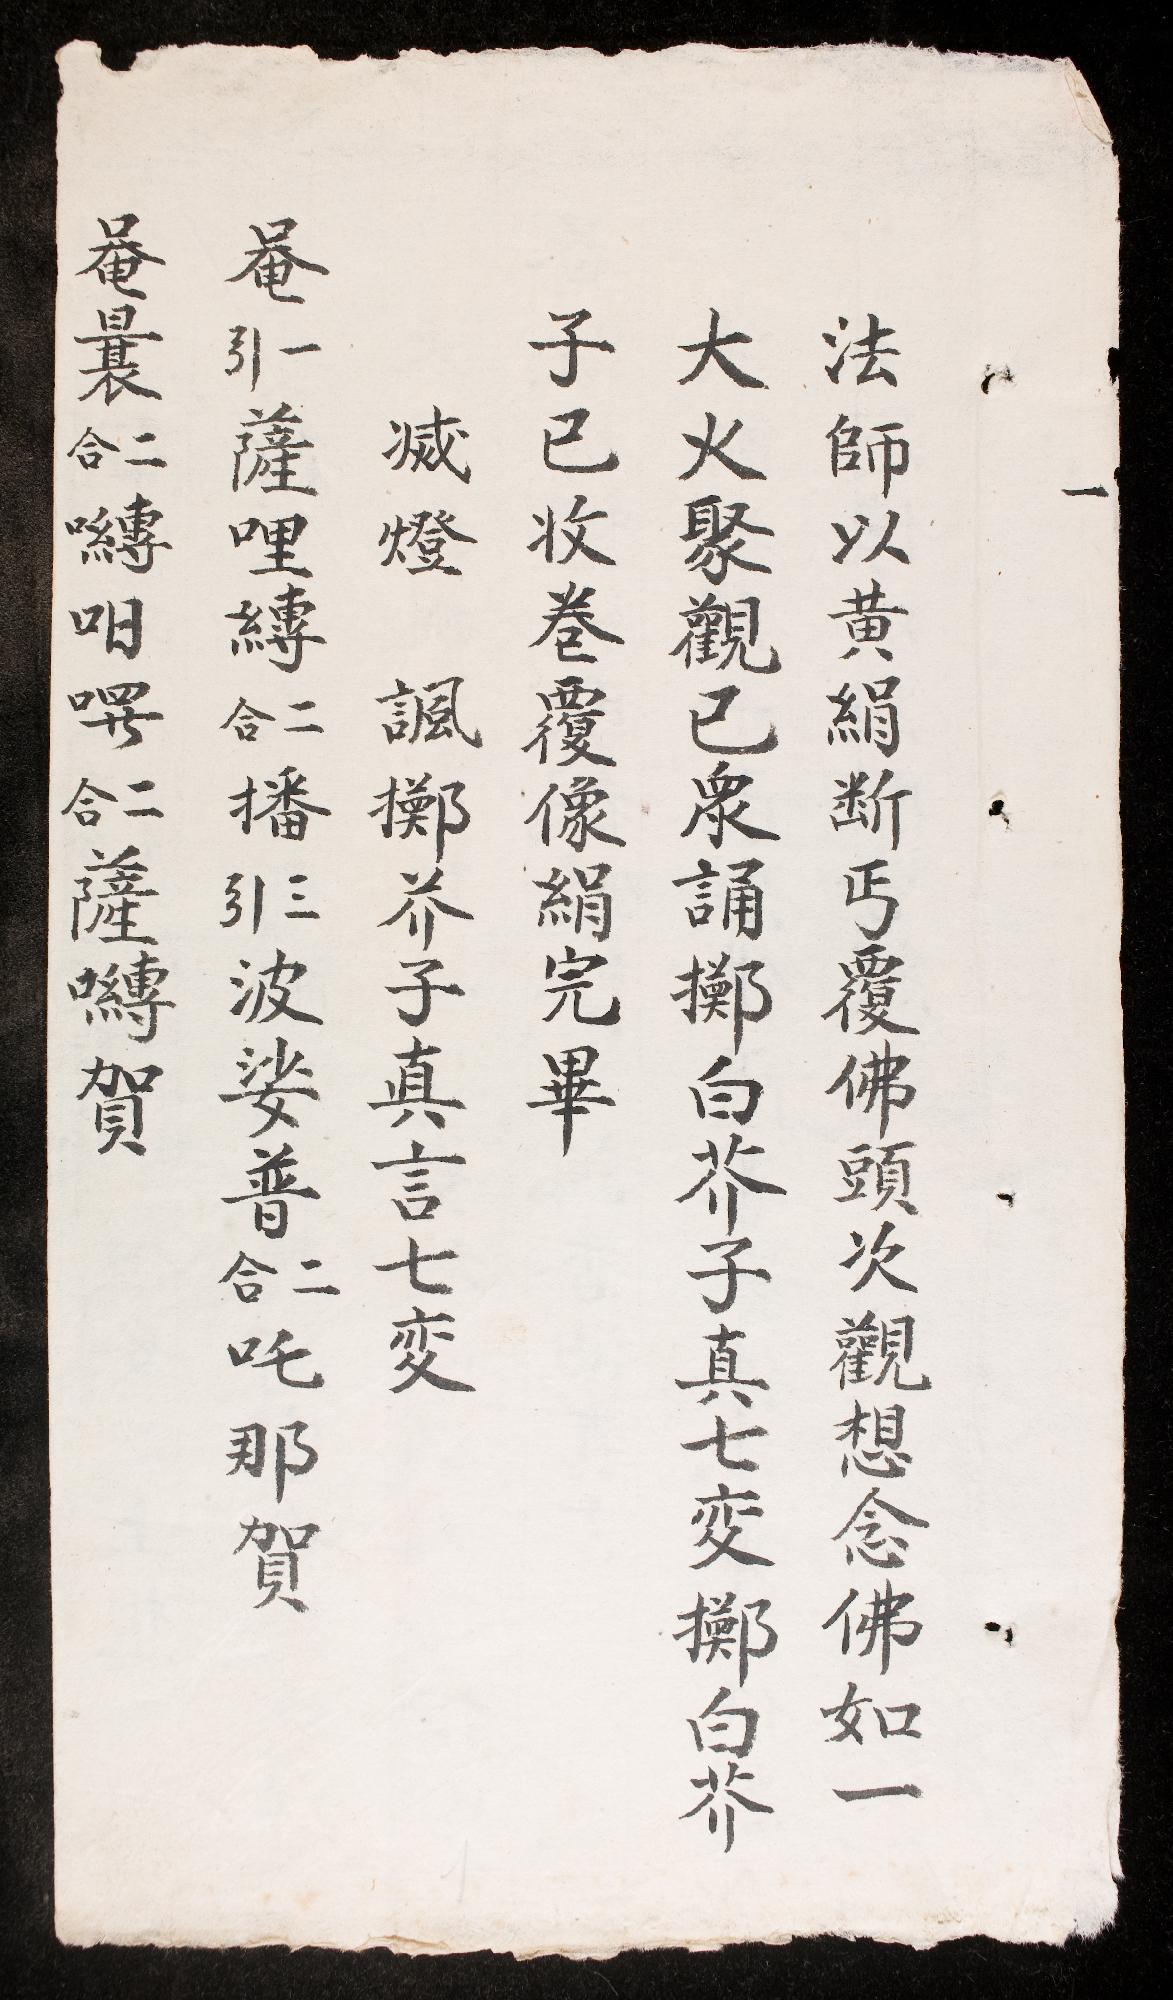 一
法師以黄絹断丐覆佛頭次觀想念佛如一
大火聚觀已衆誦擲白芥子真七変擲白芥
子已收卷覆像絹完畢
滅燈　諷擲芥子真言七変
唵一引薩哩縛二合播三引波娑普二合吒那賀
唵曩二合嚩二合薩嚩賀